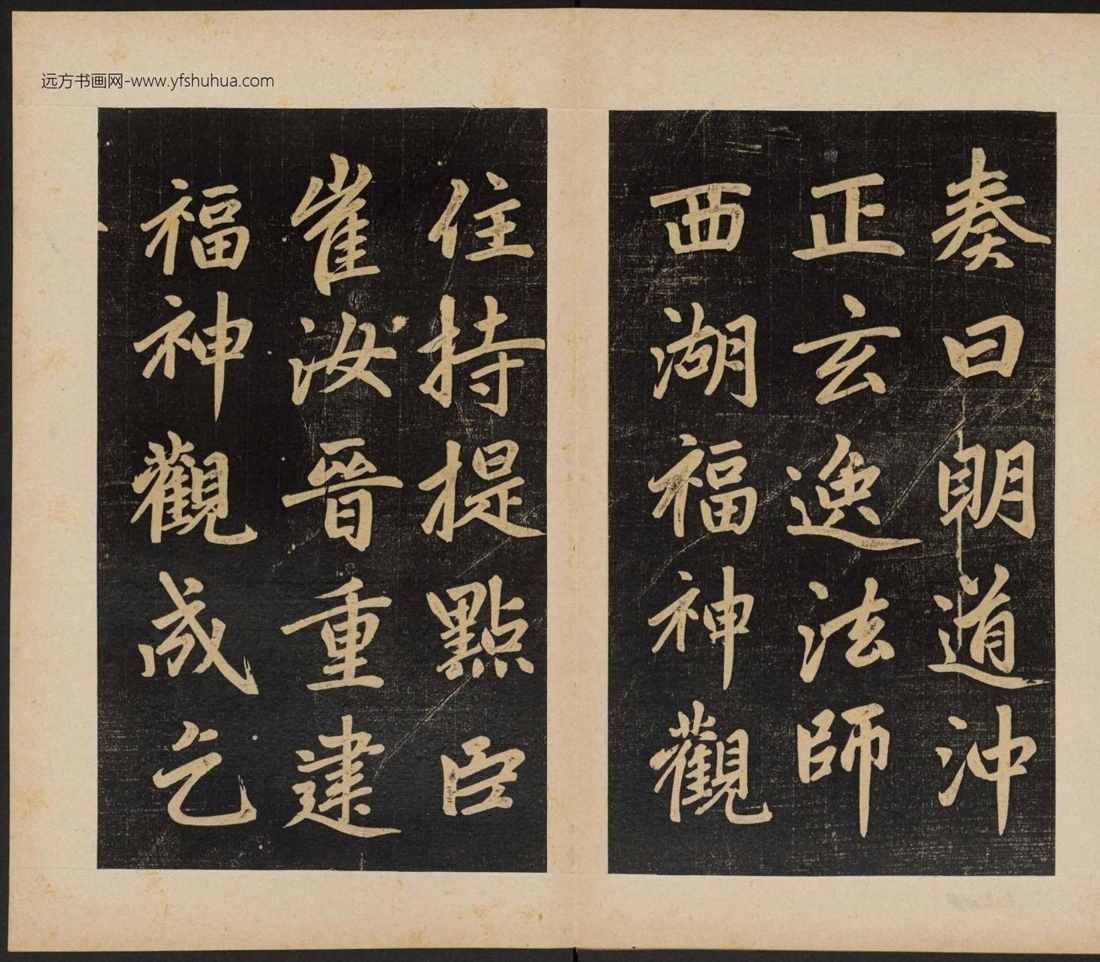 远方书画网-www.yfshuhua.com
奏曰明道沖
正玄逸法師
西湖福神觀
住持提點臣
崔汝晉重建
福神觀成乞